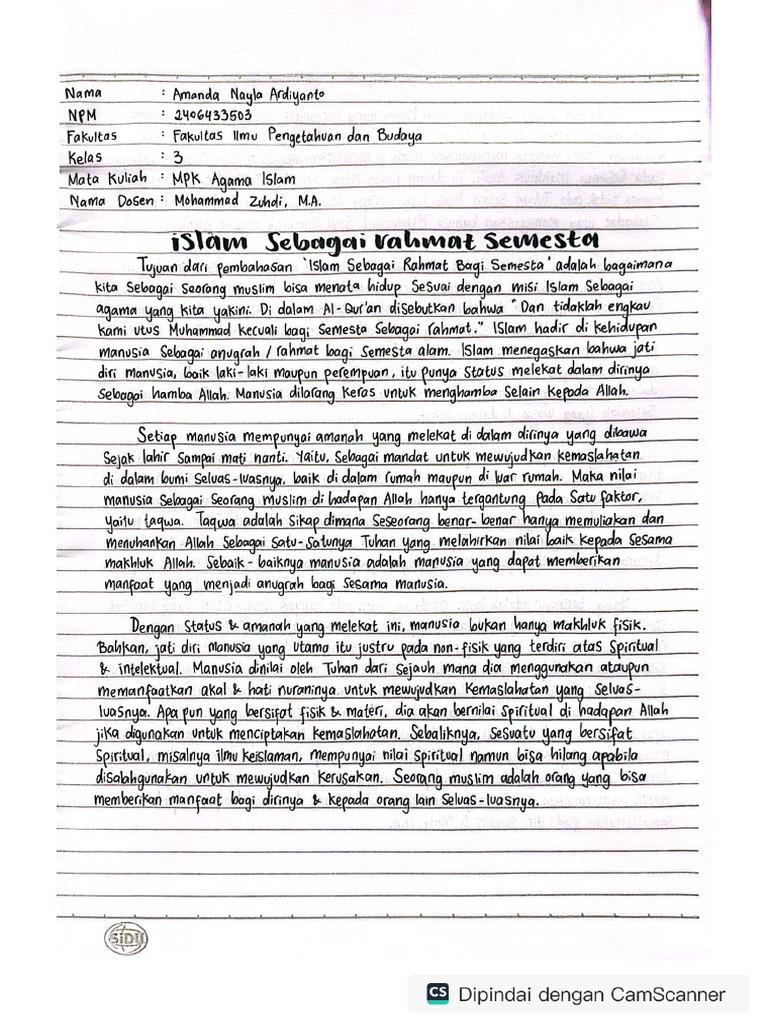 Nama : Amanda Nayla Ardiyanto
NPM : 2406433503
Fakultas : Fakultas Ilmu Pengetahuan dan Budaya
Kelas : 3
Mata Kuliah : MPK Agama Islam
Nama Dosen : Mohammad Zuhdi, M.A.
islam Sebagai rahmat Semesta
Tujuan dari pembahasan "Islam Sebagai Rahmat Bagi Semesta" adalah bagaimana
kita Sebagai Seorang muslim bisa menata hidup Sesuai dengan misi Islam Sebagai
agama yang kita yakini. Di dalam Al-Qur'an disebutkan bahwa "Dan tidaklah engkau
kami utus Muhammad kecuali bagi Semesta Sebagai rahmat." Islam hadir di kehidupan
manusia Sebagai anugrah / rahmat bagi Semesta alam. Islam menegaskan bahwa jati
diri manusia, baik laki-laki maupun perempuan, itu punya Status melekat dalam dirinya
Sebagai hamba Allah. Manusia dilarang keras untuk menghamba Selain kepada Allah.
Setiap manusia mempunyai amanah yang melekat di dalam dirinya yang dibawa
Sejak lahir Sampai mati nanti. Yaitu, Sebagai mandat untuk mewujudkan kemaslahatan
di dalam bumi Seluas-luasnya, baik di dalam rumah maupun di luar rumah. Maka nilai
manusia Sebagai Seorang muslim di hadapan Allah hanya tergantung pada Satu faktor,
yaitu taqwa. Taqwa adalah Sikap dimana Seseorang benar-benar hanya memuliakan dan
menuhankan Allah Sebagai Satu-Satunya Tuhan yang melahirkan nilai baik kepada Sesama
makhluk Allah. Sebaik-baiknya manusia adalah manusia yang dapat memberikan
manfaat yang menjadi anugrah bagi Sesama manusia.
Dengan Status & amanah yang melekat ini, manusia bukan hanya makhluk fisik.
Bahkan, jati diri manusia yang utama itu justru pada non-fisik yang terdiri atas Spiritual
& intelektual. Manusia dinilai oleh Tuhan dari Sejauh mana dia menggunakan ataupun
memanfaatkan akal & hati nuraninya untuk mewujudkan kemaslahatan yang Seluas-
luasnya. Apa pun yang bersifat fisik & materi, dia akan bernilai Spiritual di hadapan Allah
jika digunakan untuk menciptakan kemaslahatan. Sebaliknya, Sesuatu yang bersifat
Spiritual, misalnya ilmu keislaman, mempunyai nilai Spiritual namun bisa hilang apabila
disalahgunakan untuk mewujudkan kerusakan. Seorang muslim adalah orang yang bisa
memberikan manfaat bagi dirinya & kepada orang lain Seluas-luasnya.
SiDU
CS Dipindai dengan CamScanner